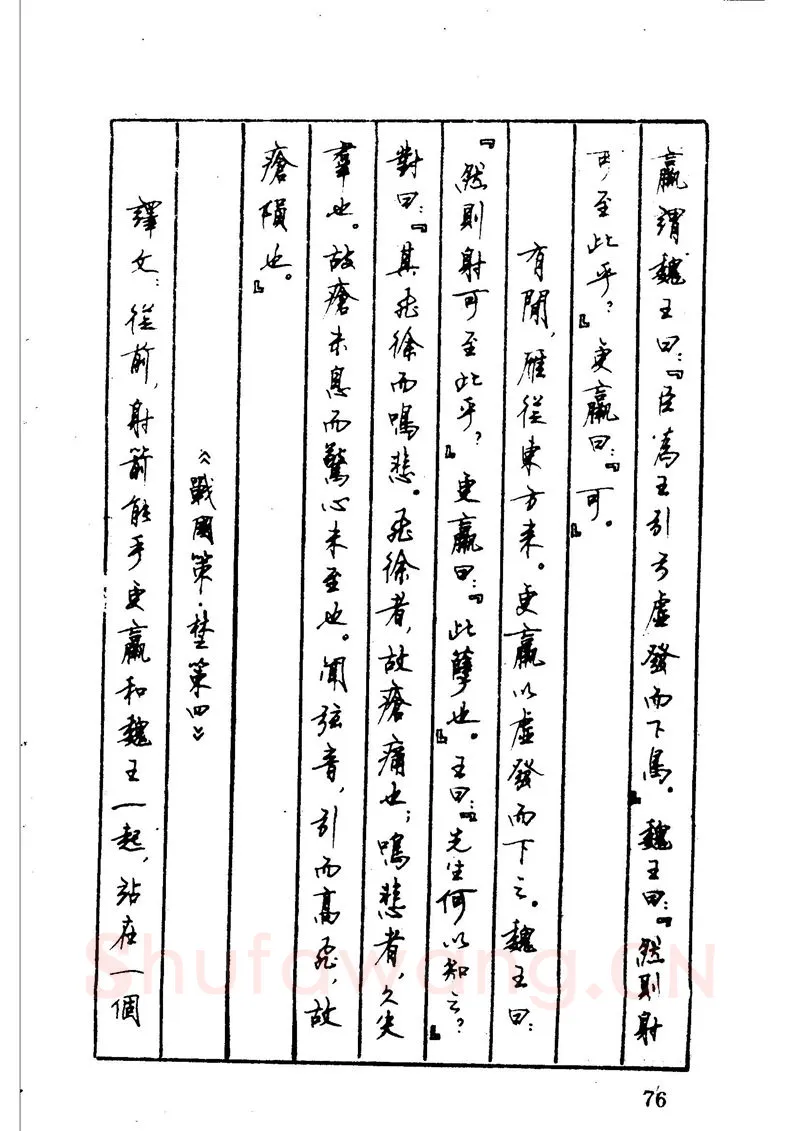 羸謂魏王曰:『臣為王引弓虛發而下鳥。』魏王曰:『然則射
可至此乎?』更羸曰:『可。』
有間,雁從東方来。更羸以虛發而下之。魏王曰:
『然則射可至此乎?』更羸曰:『此孽也。』王曰:『先生何以知之?』
對曰:『其飛徐而鳴悲。飛徐者,故瘡痛也;鳴悲者,久失
羣也。故瘡未息而驚心未至也。聞弦音,引而高飛,故
瘡隕也。』
《戰國策·楚策四》
譯文:從前,射箭能手更羸和魏王一起,站在一個
Shufawang.CN
76